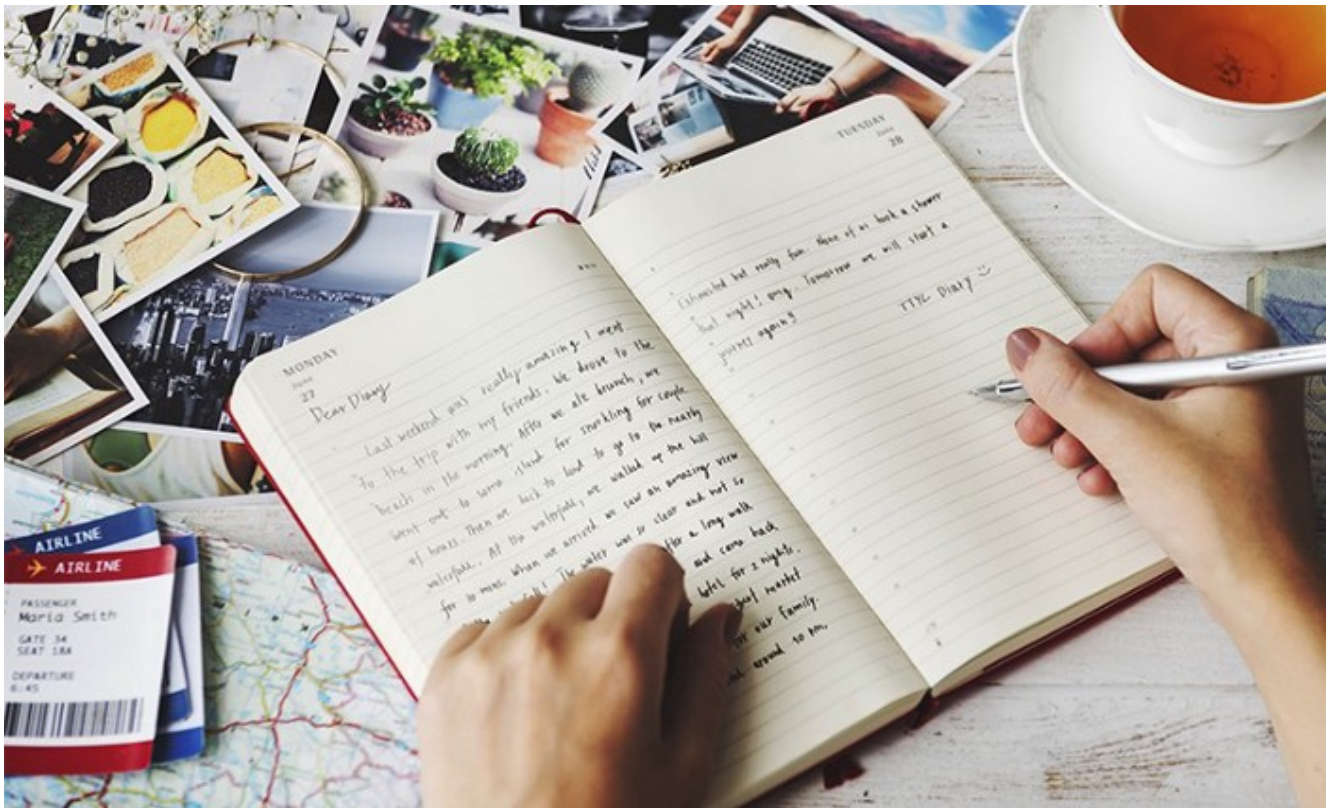 MONDAY
June
27
Dear Diary
Last weekend was really amazing. I went
to the trip with my friends. We drove to the
beach in the morning. After we ate brunch, we
went out to some island for snorkling for couple
of hours. Then we back to land to go to the nearby
waterfall. At the waterfall, we walked up the hill
for 10 mins. When we arrived we saw an amazing view
The water was so clear and not so
after a long walk
and came back
hotel for 2 nights.
market
for our family.
around 10 pm.
TUESDAY
June
28
Exhausted but really fun. None of us took a shower
that night! omg. Tomorrow we will start a
journey again!
TTYL Diary
AIRLINE
AIRLINE
PASSENGER
Maria Smith
GATE 34
SEAT 18A
DEPARTURE
6:45